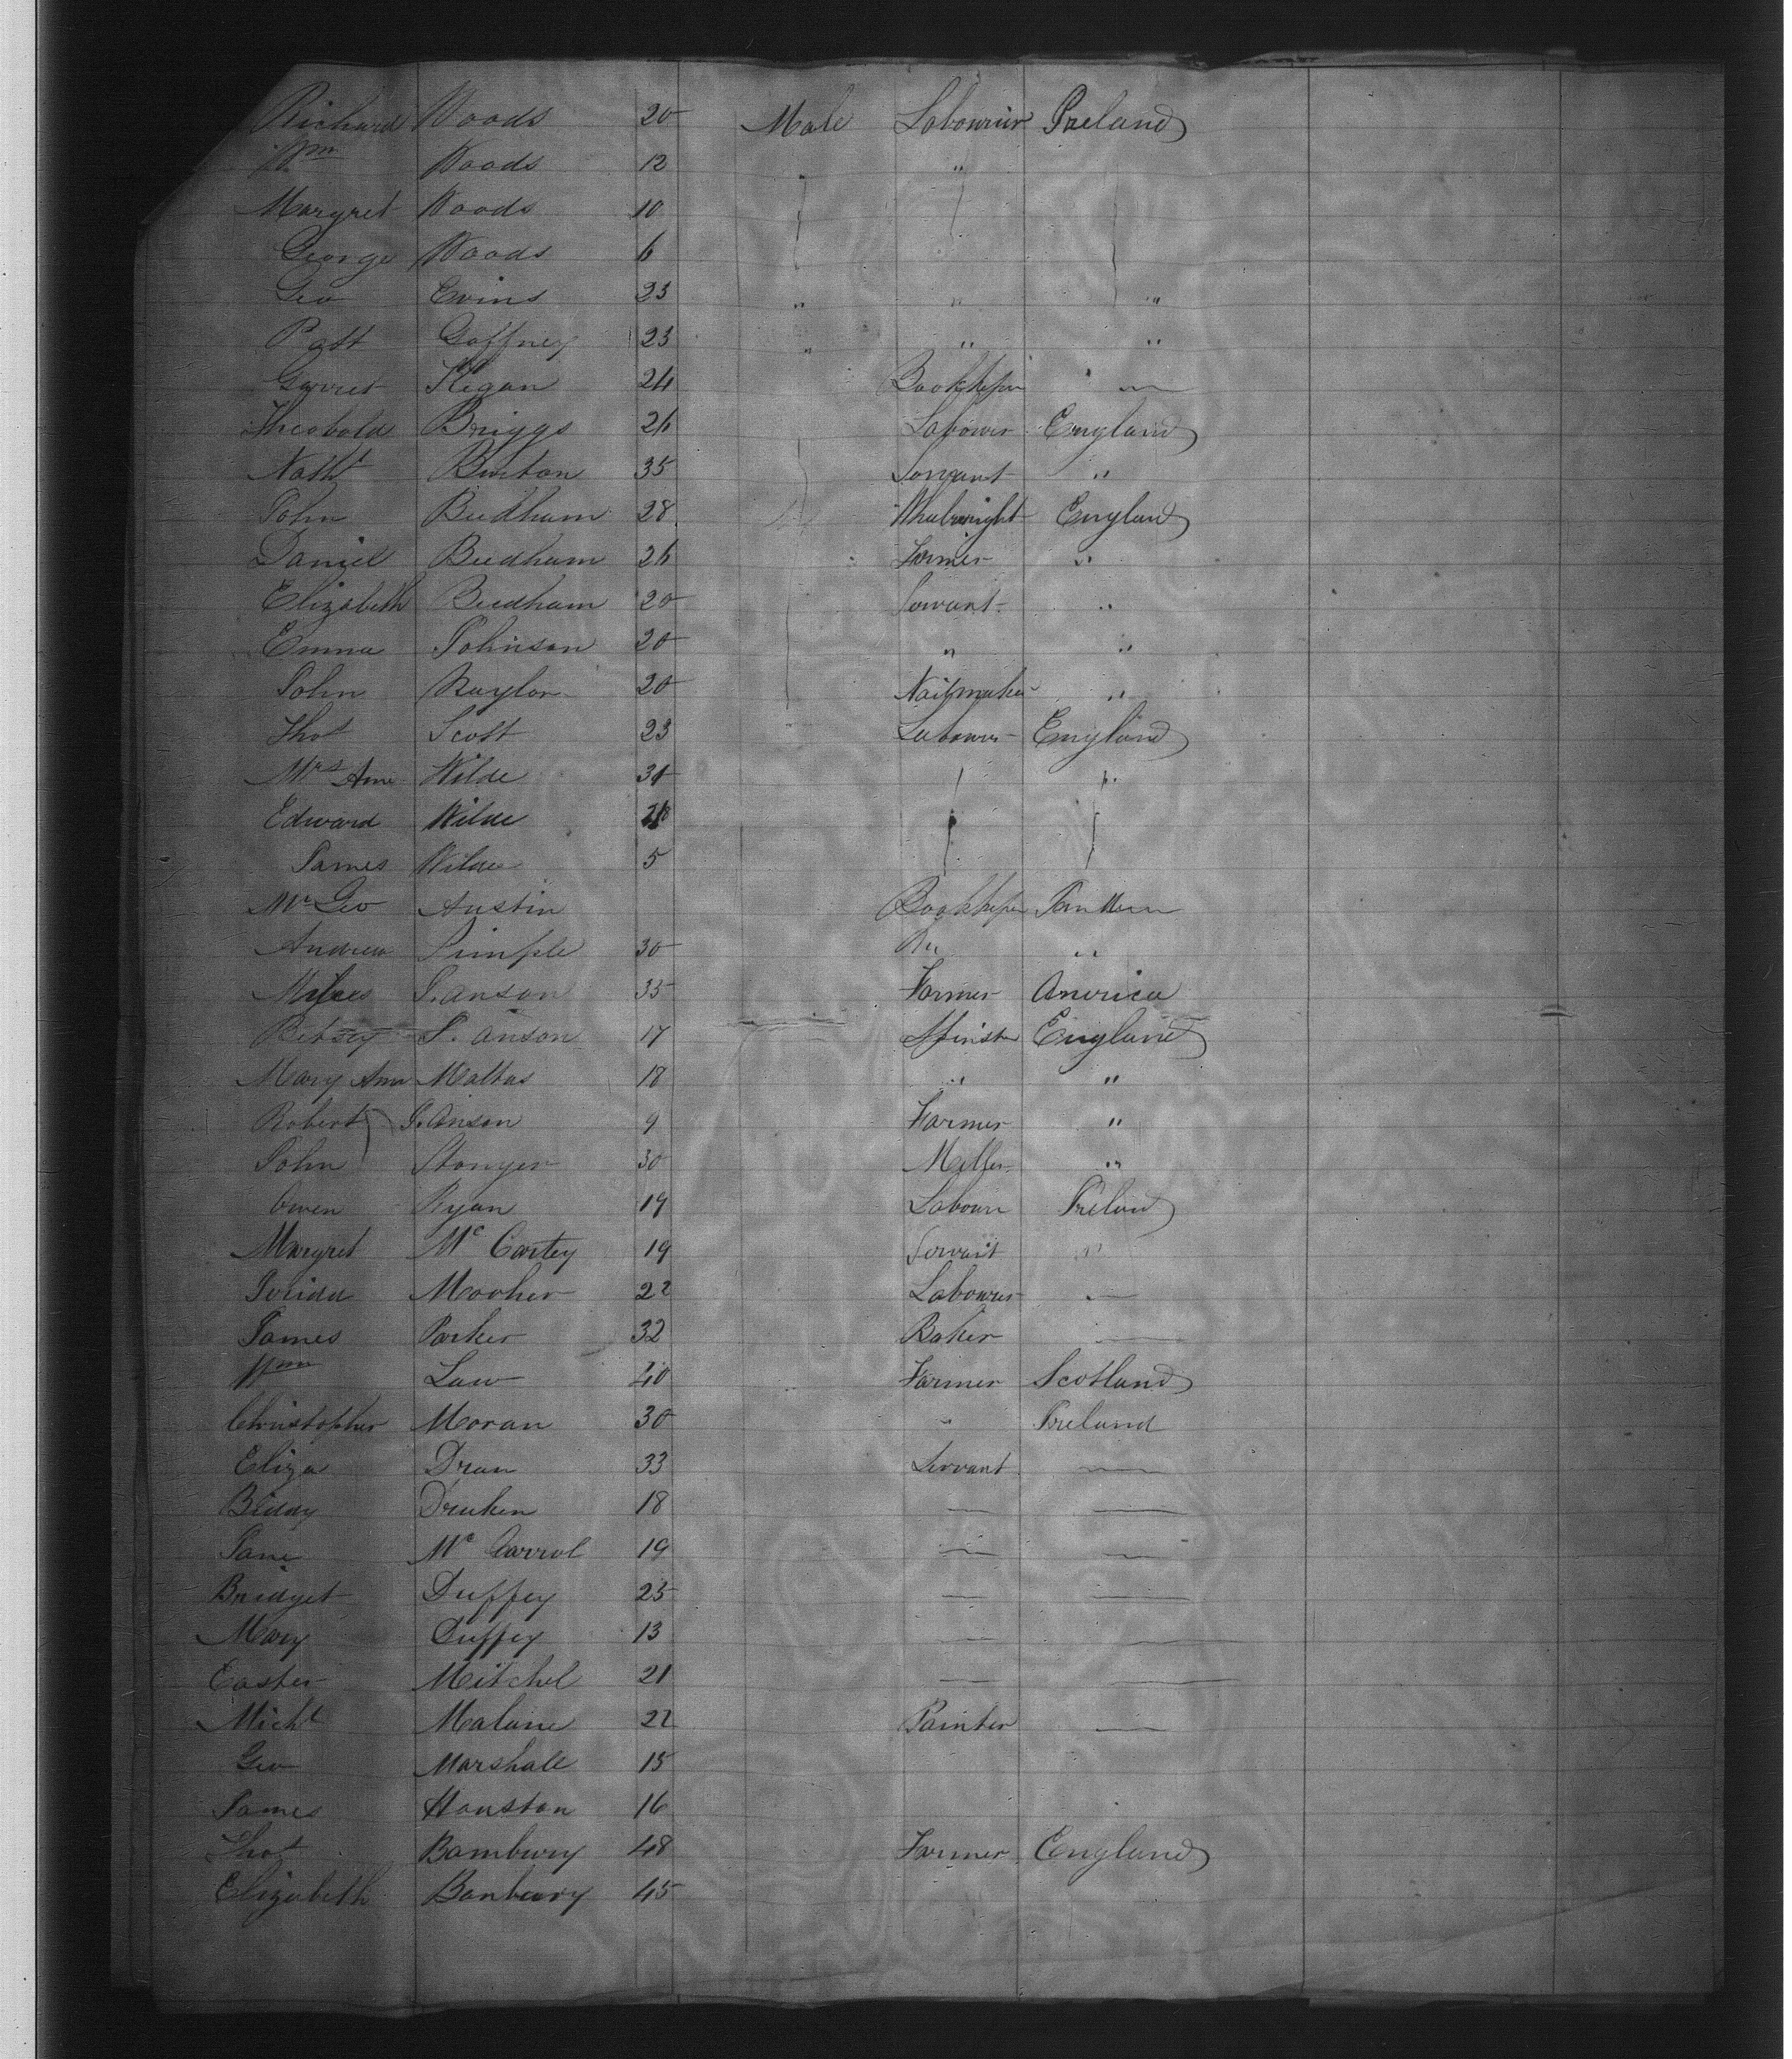 Richard Woods 20 Male Labourier Ireland
Wm Woods 12 " "
Margret Woods 10
George Woods 6
Geo Evins 23 " " "
Patt Gaffney 23 " " "
Garret Kegan 24 Bookkeper "
Theobold Briggs 26 Labourer England
Nathl Burton 35 Servant "
John Beedham 28 Whelwright England
Daniel Beedham 26 Farmer "
Elizabeth Beedham 20 Servant "
Emma Johnson 20 " "
John Naylor 20 Nailmaker "
Thos Scott 23 Labourer England
Mrs Ann Wilde 31 "
Edward Wilde
James Wilde 5
Mr Geo Austin Bookkeper
Andrew 30 "
S. anson 35 Farmer America
Betsey S. anson 17 Spinster England
Mary Ann Maltas 18 " "
Robert J. Anson 9 Farmer "
John Stonyer 30 Miller "
Owen Ryan 19 Labour Ireland
Margret Mc Cartey 19 Servant "
Mooher 22 Labourer —
James Parker 32 Baker —
Wm Law 40 Farmer Scotland
Christopher Moran 30 " Ireland
Eliza Dran 33 Servant —
Biddy Druken 18 — —
Jane Mc Carrol 19 — —
Bridget Duffey 25 — —
Mary Duffey 13 — —
Easter Mitchel 21 — —
Michl Malune 22 Painter —
Geo Marshall 15
James Houston 16
Thos Bambury 48 Farmer England
Elizabeth Banbury 45